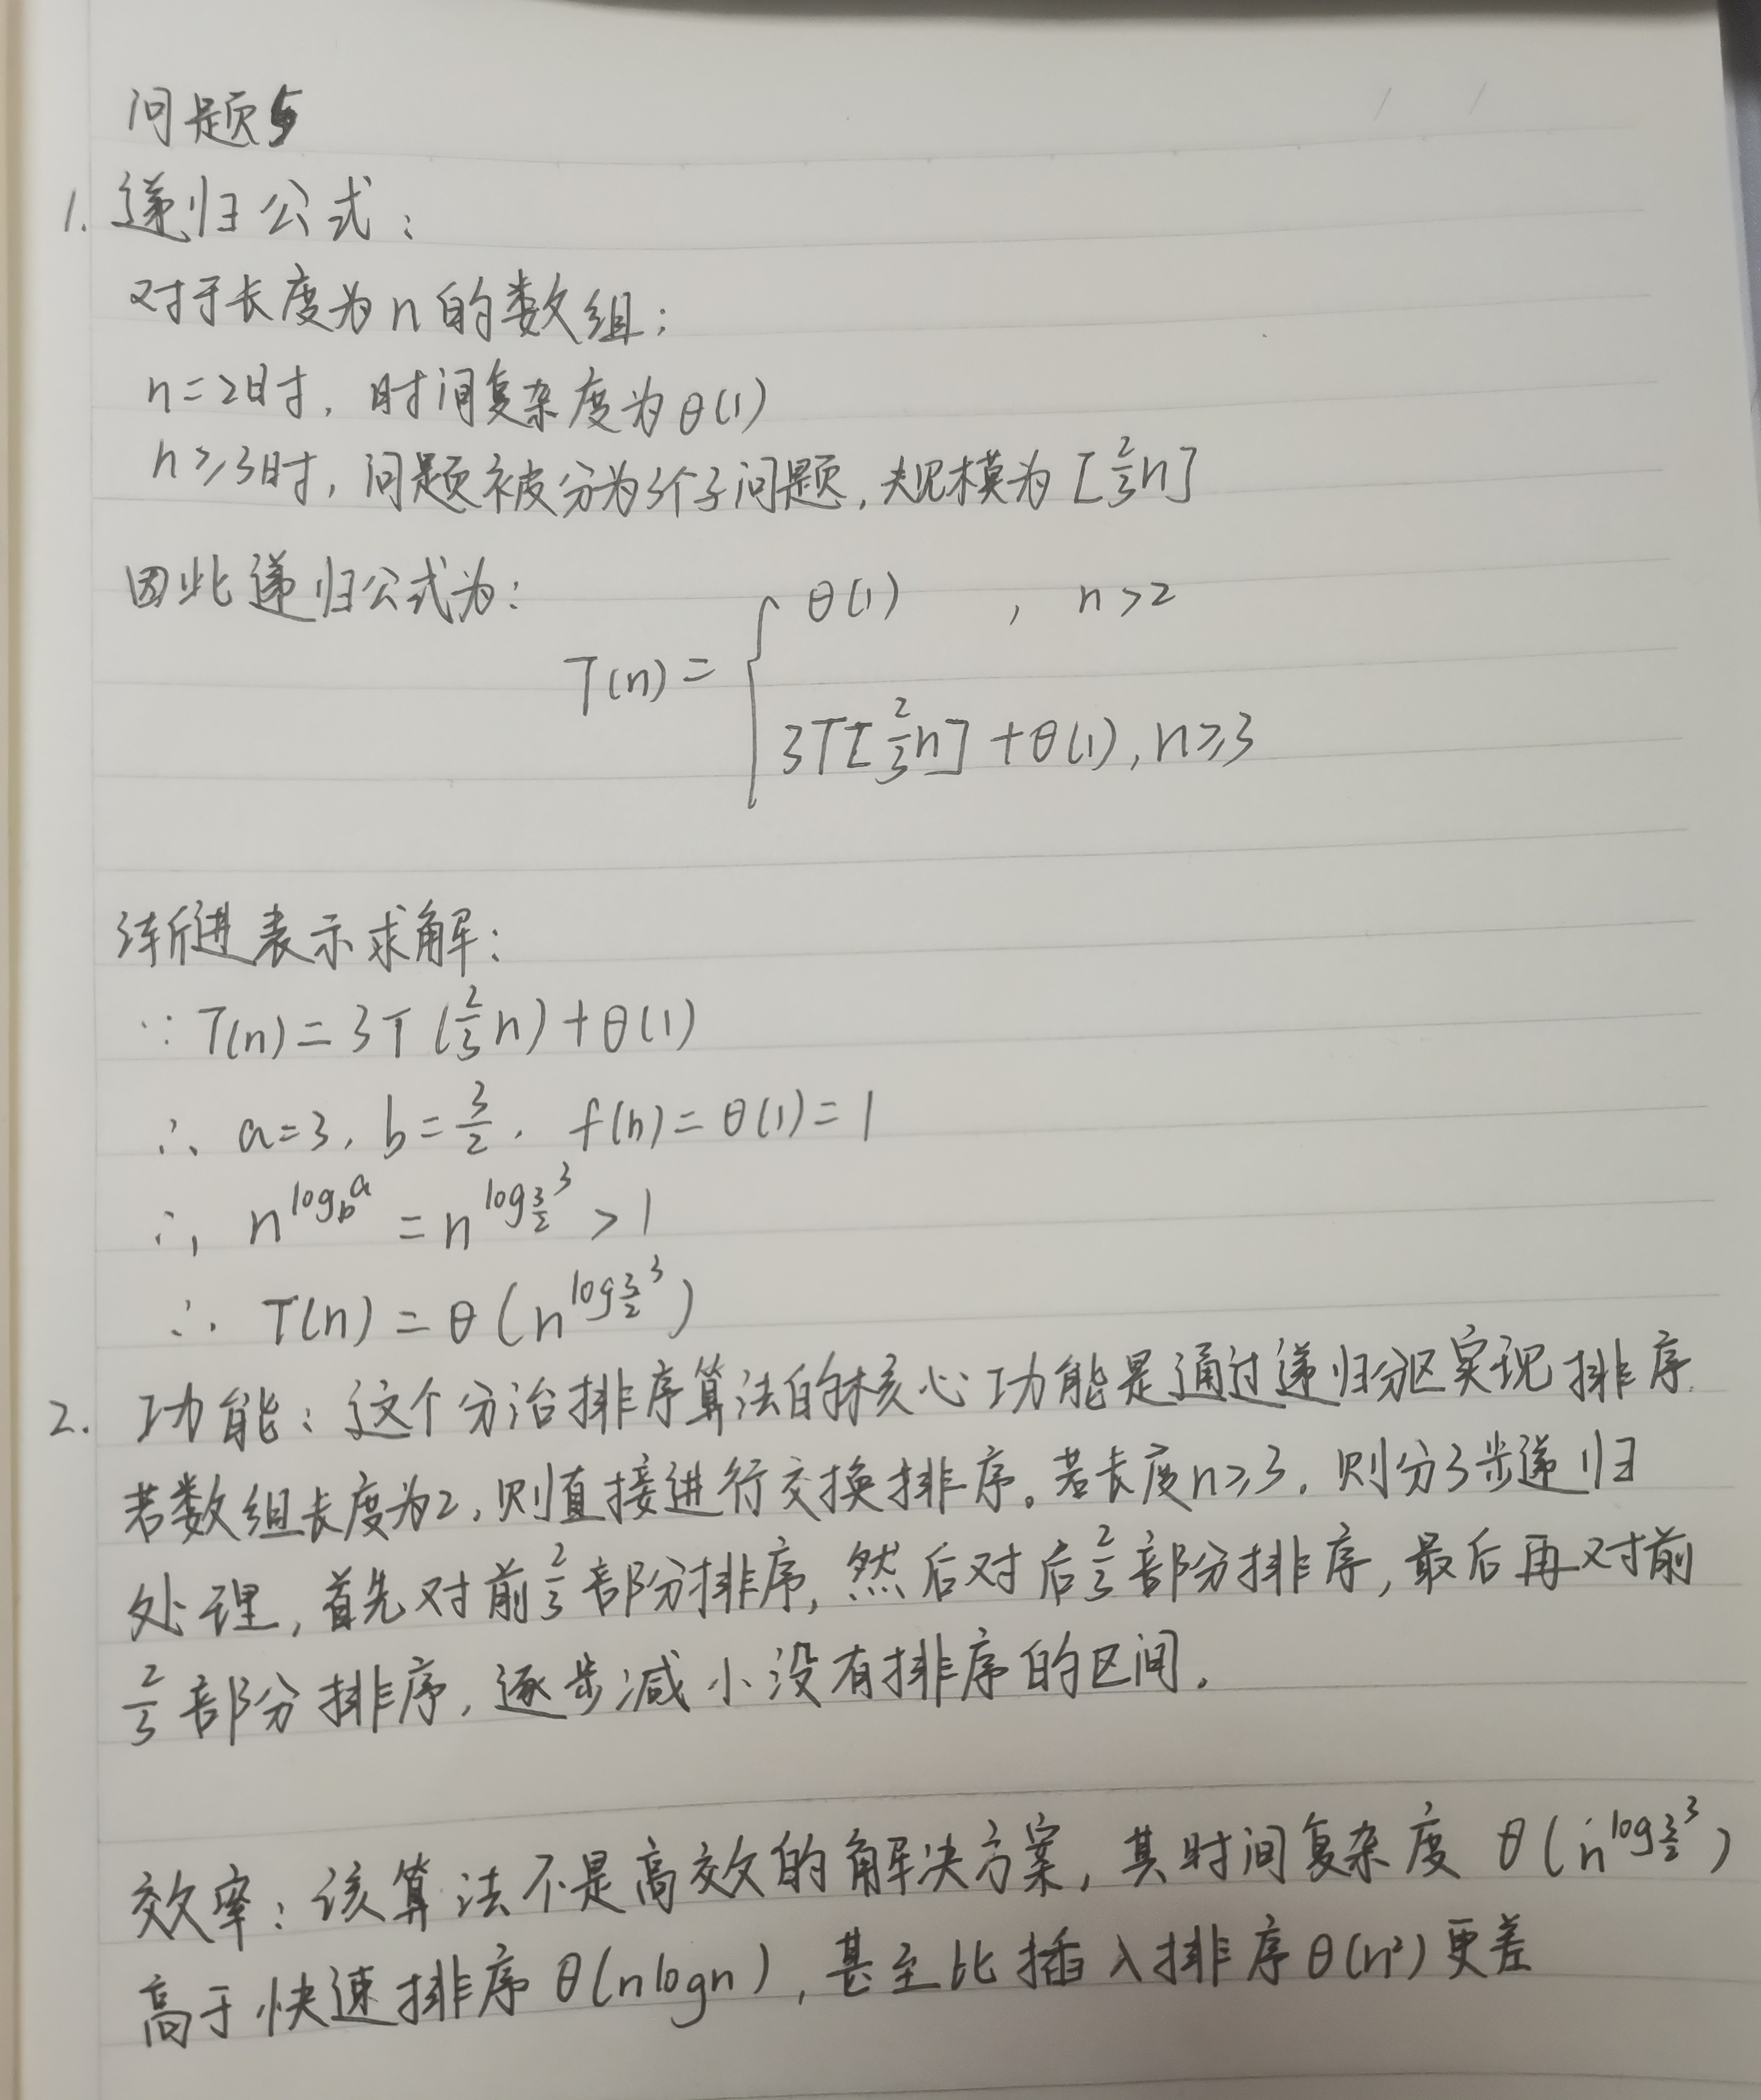 问题5
1. 递归公式：
对于长度为n的数组：
n=2时，时间复杂度为θ(1)
n≥3时，问题被分为3个子问题，规模为[2/3 n]
因此递归公式为：
T(n) = { θ(1) , n>2
3T[2/3 n] + θ(1), n≥3
渐进表示求解：
∵ T(n) = 3T(2/3 n) + θ(1)
∴ a=3, b=3/2, f(n)=θ(1)=1
∴ n^{log_b a} = n^{log_{3/2} 3} > 1
∴ T(n) = θ(n^{log_{3/2} 3})
2. 功能：这个分治排序算法的核心功能是通过递归分区实现排序.
若数组长度为2，则直接进行交换排序。若长度n≥3，则分3步递归
处理，首先对前2/3部分排序，然后对后2/3部分排序，最后再对前
2/3部分排序，逐步减小没有排序的区间。
效率：该算法不是高效的解决方案，其时间复杂度 θ(n^{log_{3/2} 3})
高于快速排序θ(nlogn)，甚至比插入排序θ(n²)更差